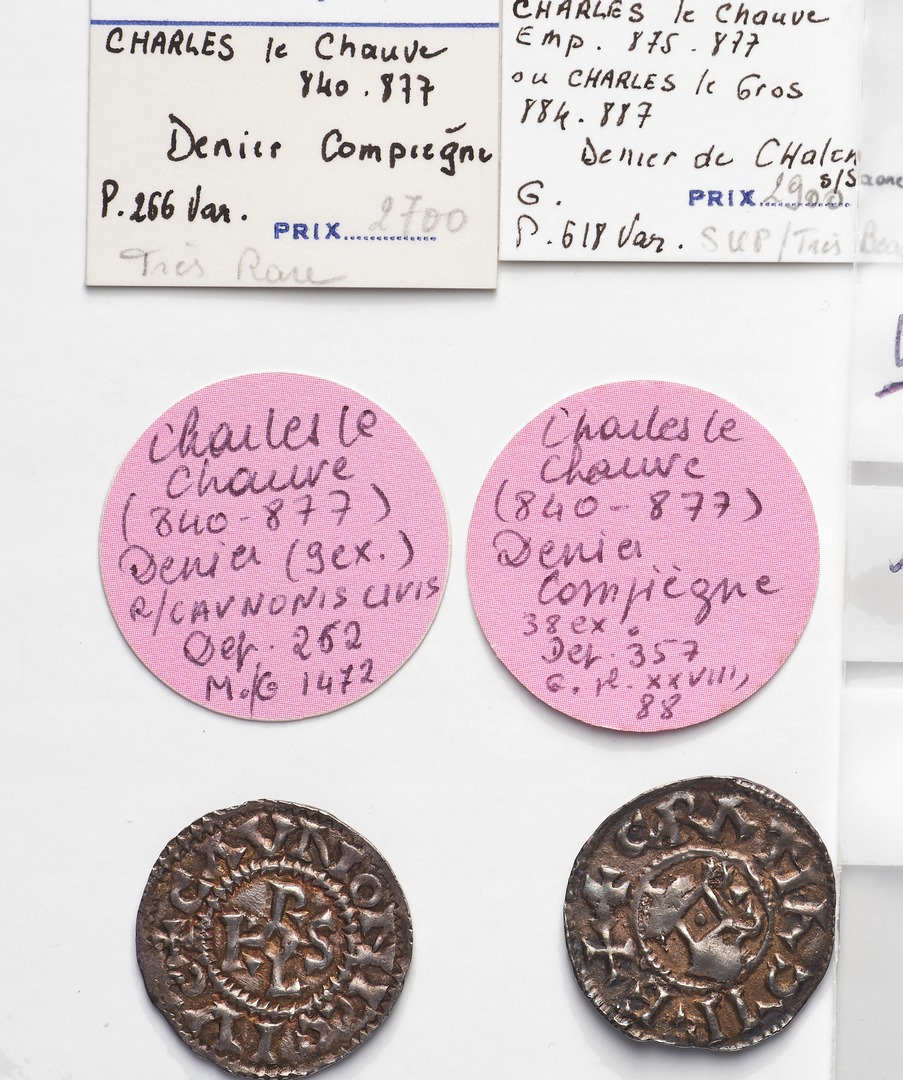 CHARLES le Chauve
840.877
Denier Compiègne
P.266 Var.
PRIX 2700
Très Rare
CHARLES le Chauve
Emp. 875.877
ou CHARLES le Gros
884.887
Denier de CHalon
s/Saone
G.
PRIX 2900
P.618 Var. SUP/Très Beau
Charles le
Chauve
(840-877)
Denier (9ex.)
R/CAVNONIS CIVIS
Dep. 252
M./G 1472
Charles le
Chauve
(840-877)
Denier
Compiègne
38 ex.
Dep. 357
G. pl. XXVIII,
88
KRLS
CRATIA D-I REX